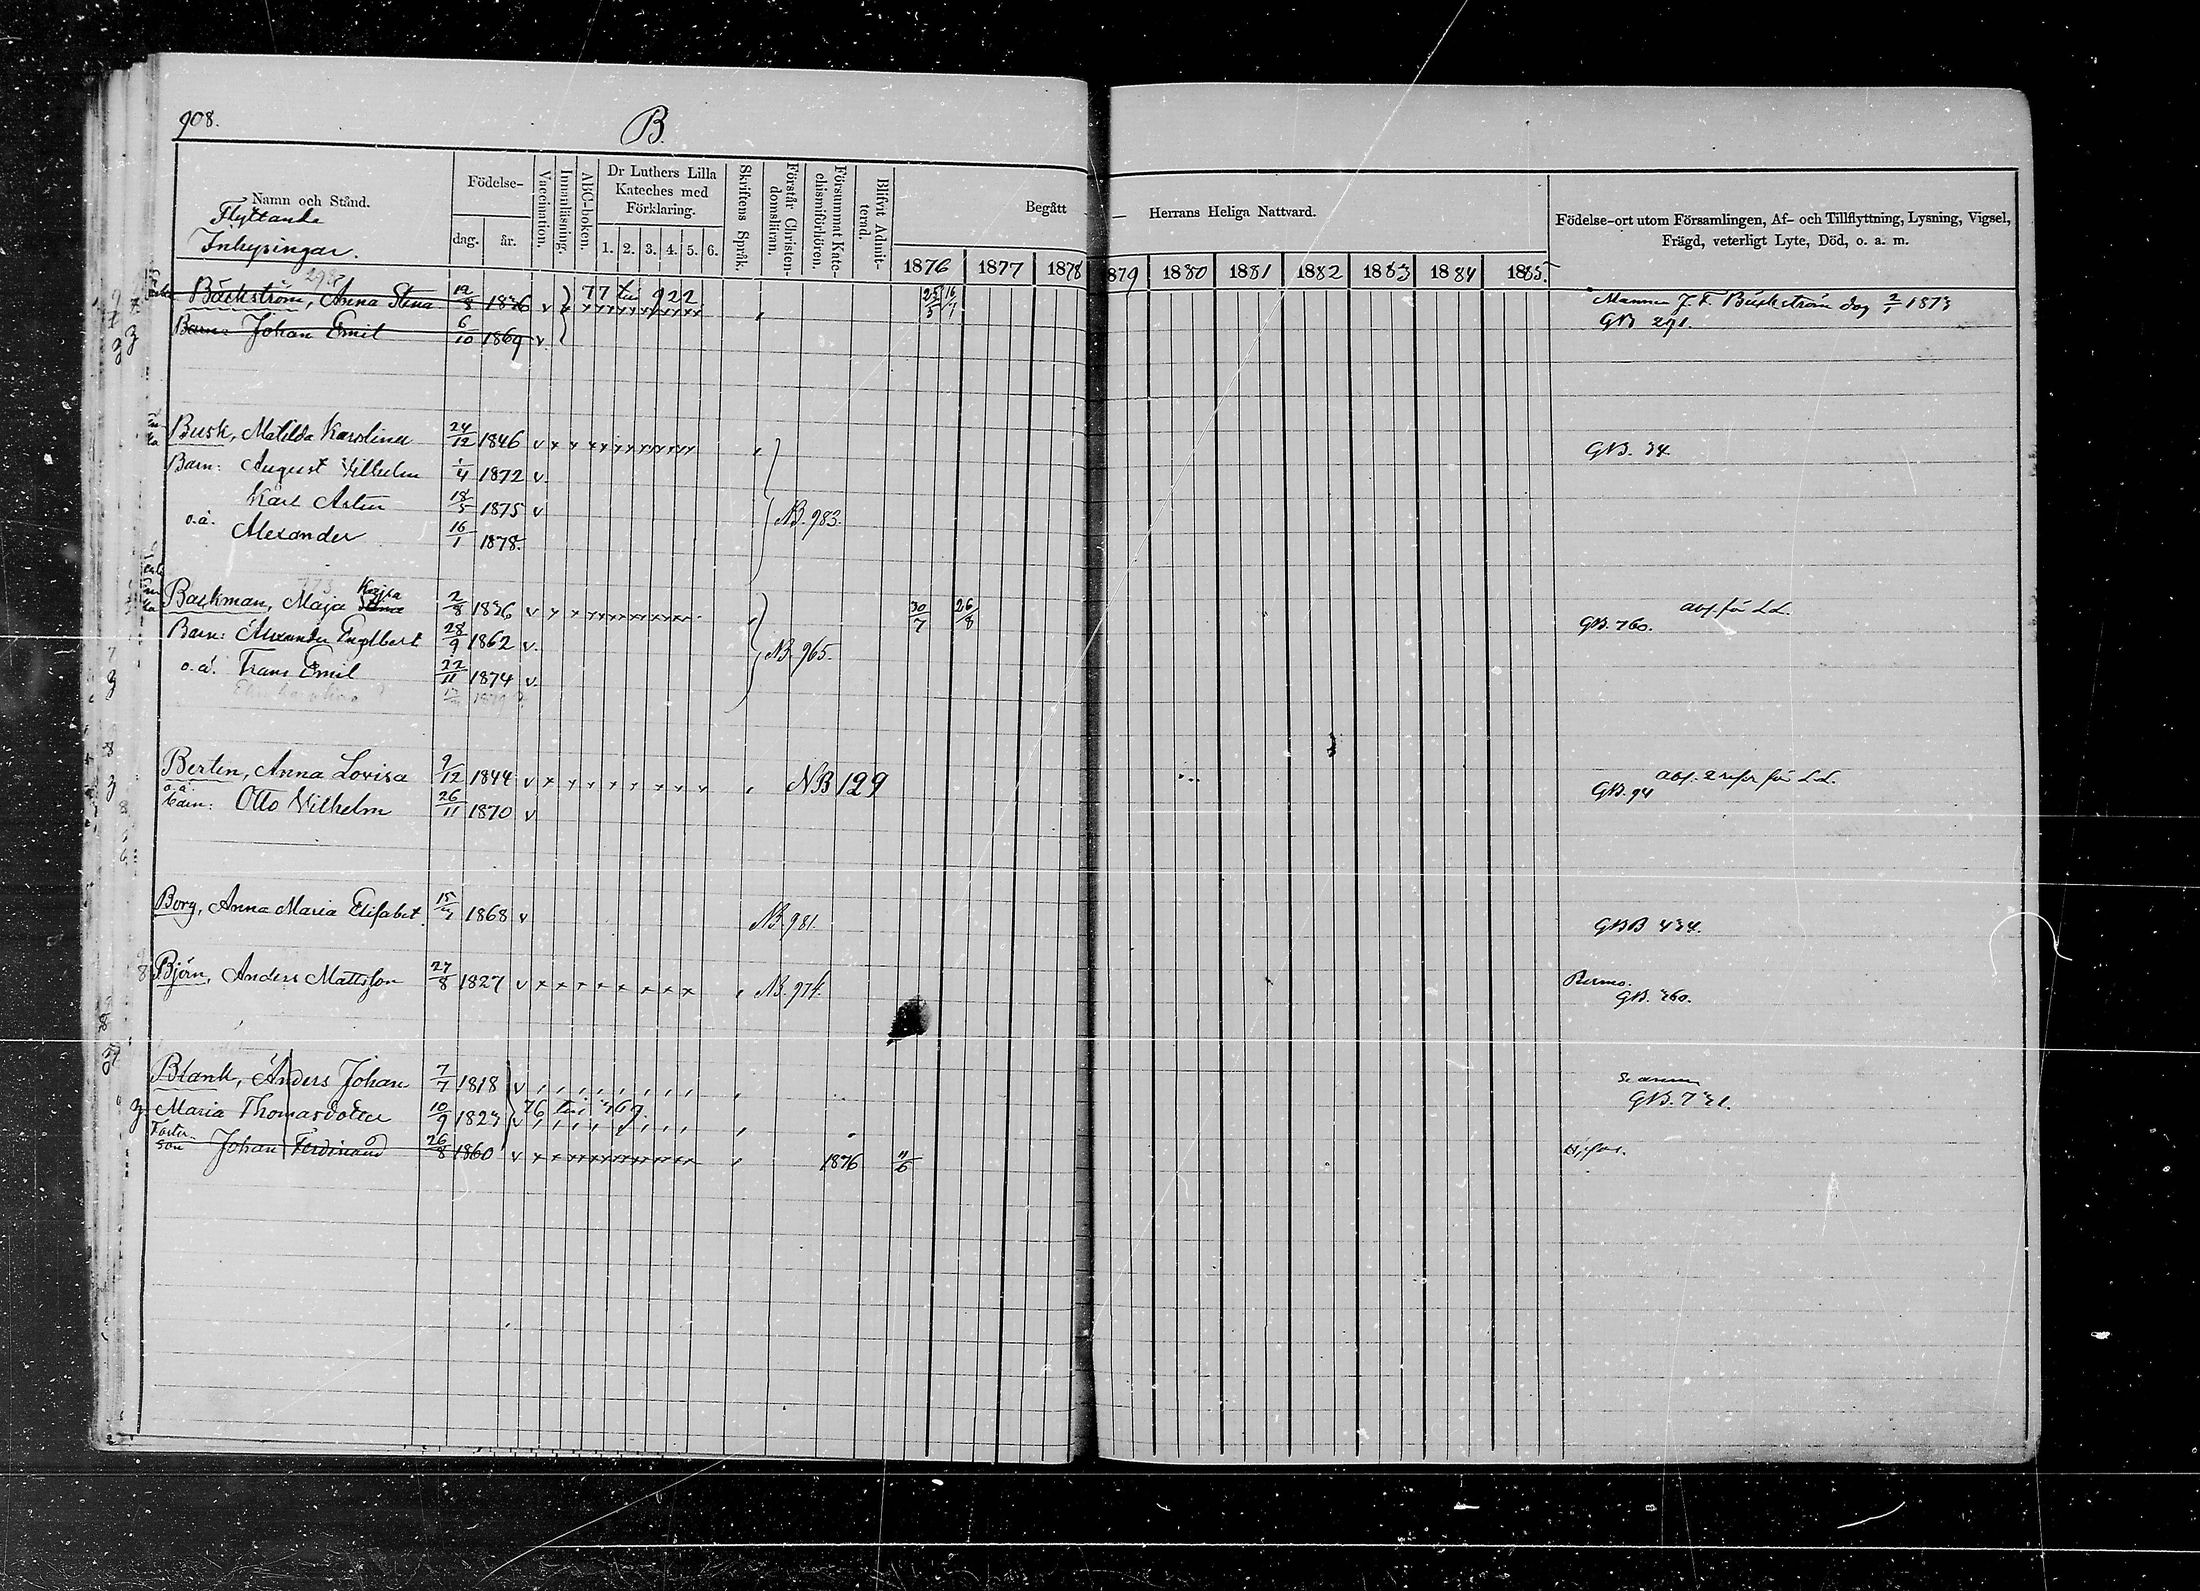 908.
B.
Namn och Stånd.
Flyttande
Inhysingar.
Födelse-
dag. år.
Vaccination.
Innanläsning.
ABC-boken.
Dr Luthers Lilla Kateches med Förklaring.
1. 2. 3. 4. 5. 6.
Skriftens Språk.
Förstår Christendomsläran.
Försummat Katechismiförhören.
Blifvit Admitterad.
Begått — Herrans Heliga Nattvard.
1876 1877 1878 1879 1880 1881 1882 1883 1884 1885
Födelse-ort utom Församlingen, Af- och Tillflyttning, Lysning, Vigsel,
Frägd, veterligt Lyte, Död, o. a. m.
Bäckström, Anna Stina 12/8 1836 v 77 till 922 25/5 16/7 Mannen J. F. Bäckström dog 2/1 1873
Barn: Johan Emil 6/10 1869 v GB 291.
Busk, Matilda Karolina 24/12 1846 v x x x x x x x x x GB. 34.
Barn: August Vilhelm 1/4 1872 v.
Karl Artur 18/5 1875 v NB. 983.
o.ä. Alexander 16/1 1878.
Backman, Maja Kajsa 2/8 1836 v x x x x x x x x 30/7 26/8 GB. 760. abs. för L.L.
Barn: Alexander Engelbert 28/9 1862 v. NB. 965.
o.ä. Frans Emil 22/11 1874 v.
Berten, Anna Lovisa 9/12 1844 v x x x x x x x x NB 129 GB. 94
o.ä. Barn: Otto Vilhelm 26/11 1870 v
Borg, Anna Maria Elisabet 15/7 1868 v NB. 981. GBB 434.
Björn, Anders Mattsson 27/8 1827 v x x x x x x x x NB. 974. Permo.
GB. 760.
Blank, Anders Johan 7/7 1818 v
Maria Thomasdotter 10/9 1823 v 76 till 769. GB. 731.
Fosterson Johan Ferdinand 26/8 1860 v x x x x x x x x x 1876 11/6